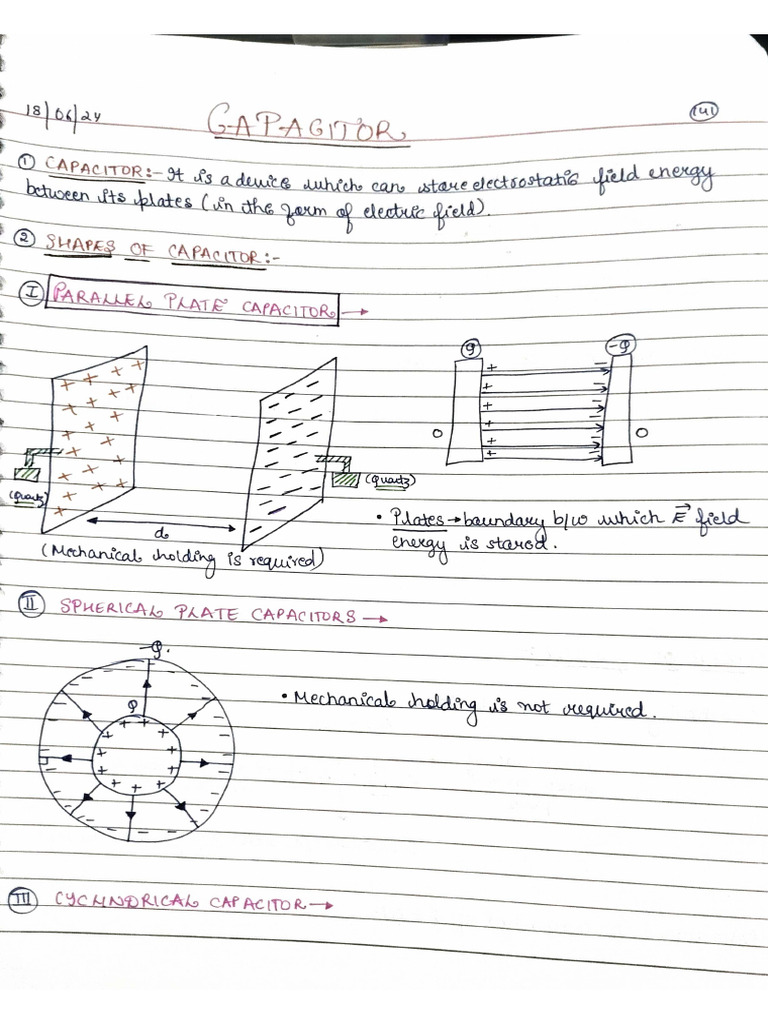 18/06/24 CAPACITOR (41)
① CAPACITOR:- It is a device which can store electrostatic field energy
between its plates (in the form of electric field).
② SHAPES OF CAPACITOR:-
Ⓘ PARALLEL PLATE CAPACITOR →
+ + + + + + + + + + + + + + + + + +
- - - - - - - - - - - - - - - - - -
Q -Q
+ + + + + + - - - - - -
O O
(Quartz) (Quartz)
d
(Mechanical holding is required)
• Plates → boundary b/w which E⃗ field
energy is stored.
II SPHERICAL PLATE CAPACITORS →
-Q.
Q
+ + + + + + + + + + + +
- - - - - - - - - - - -
• Mechanical holding is not required.
III CYCLINDRICAL CAPACITOR →